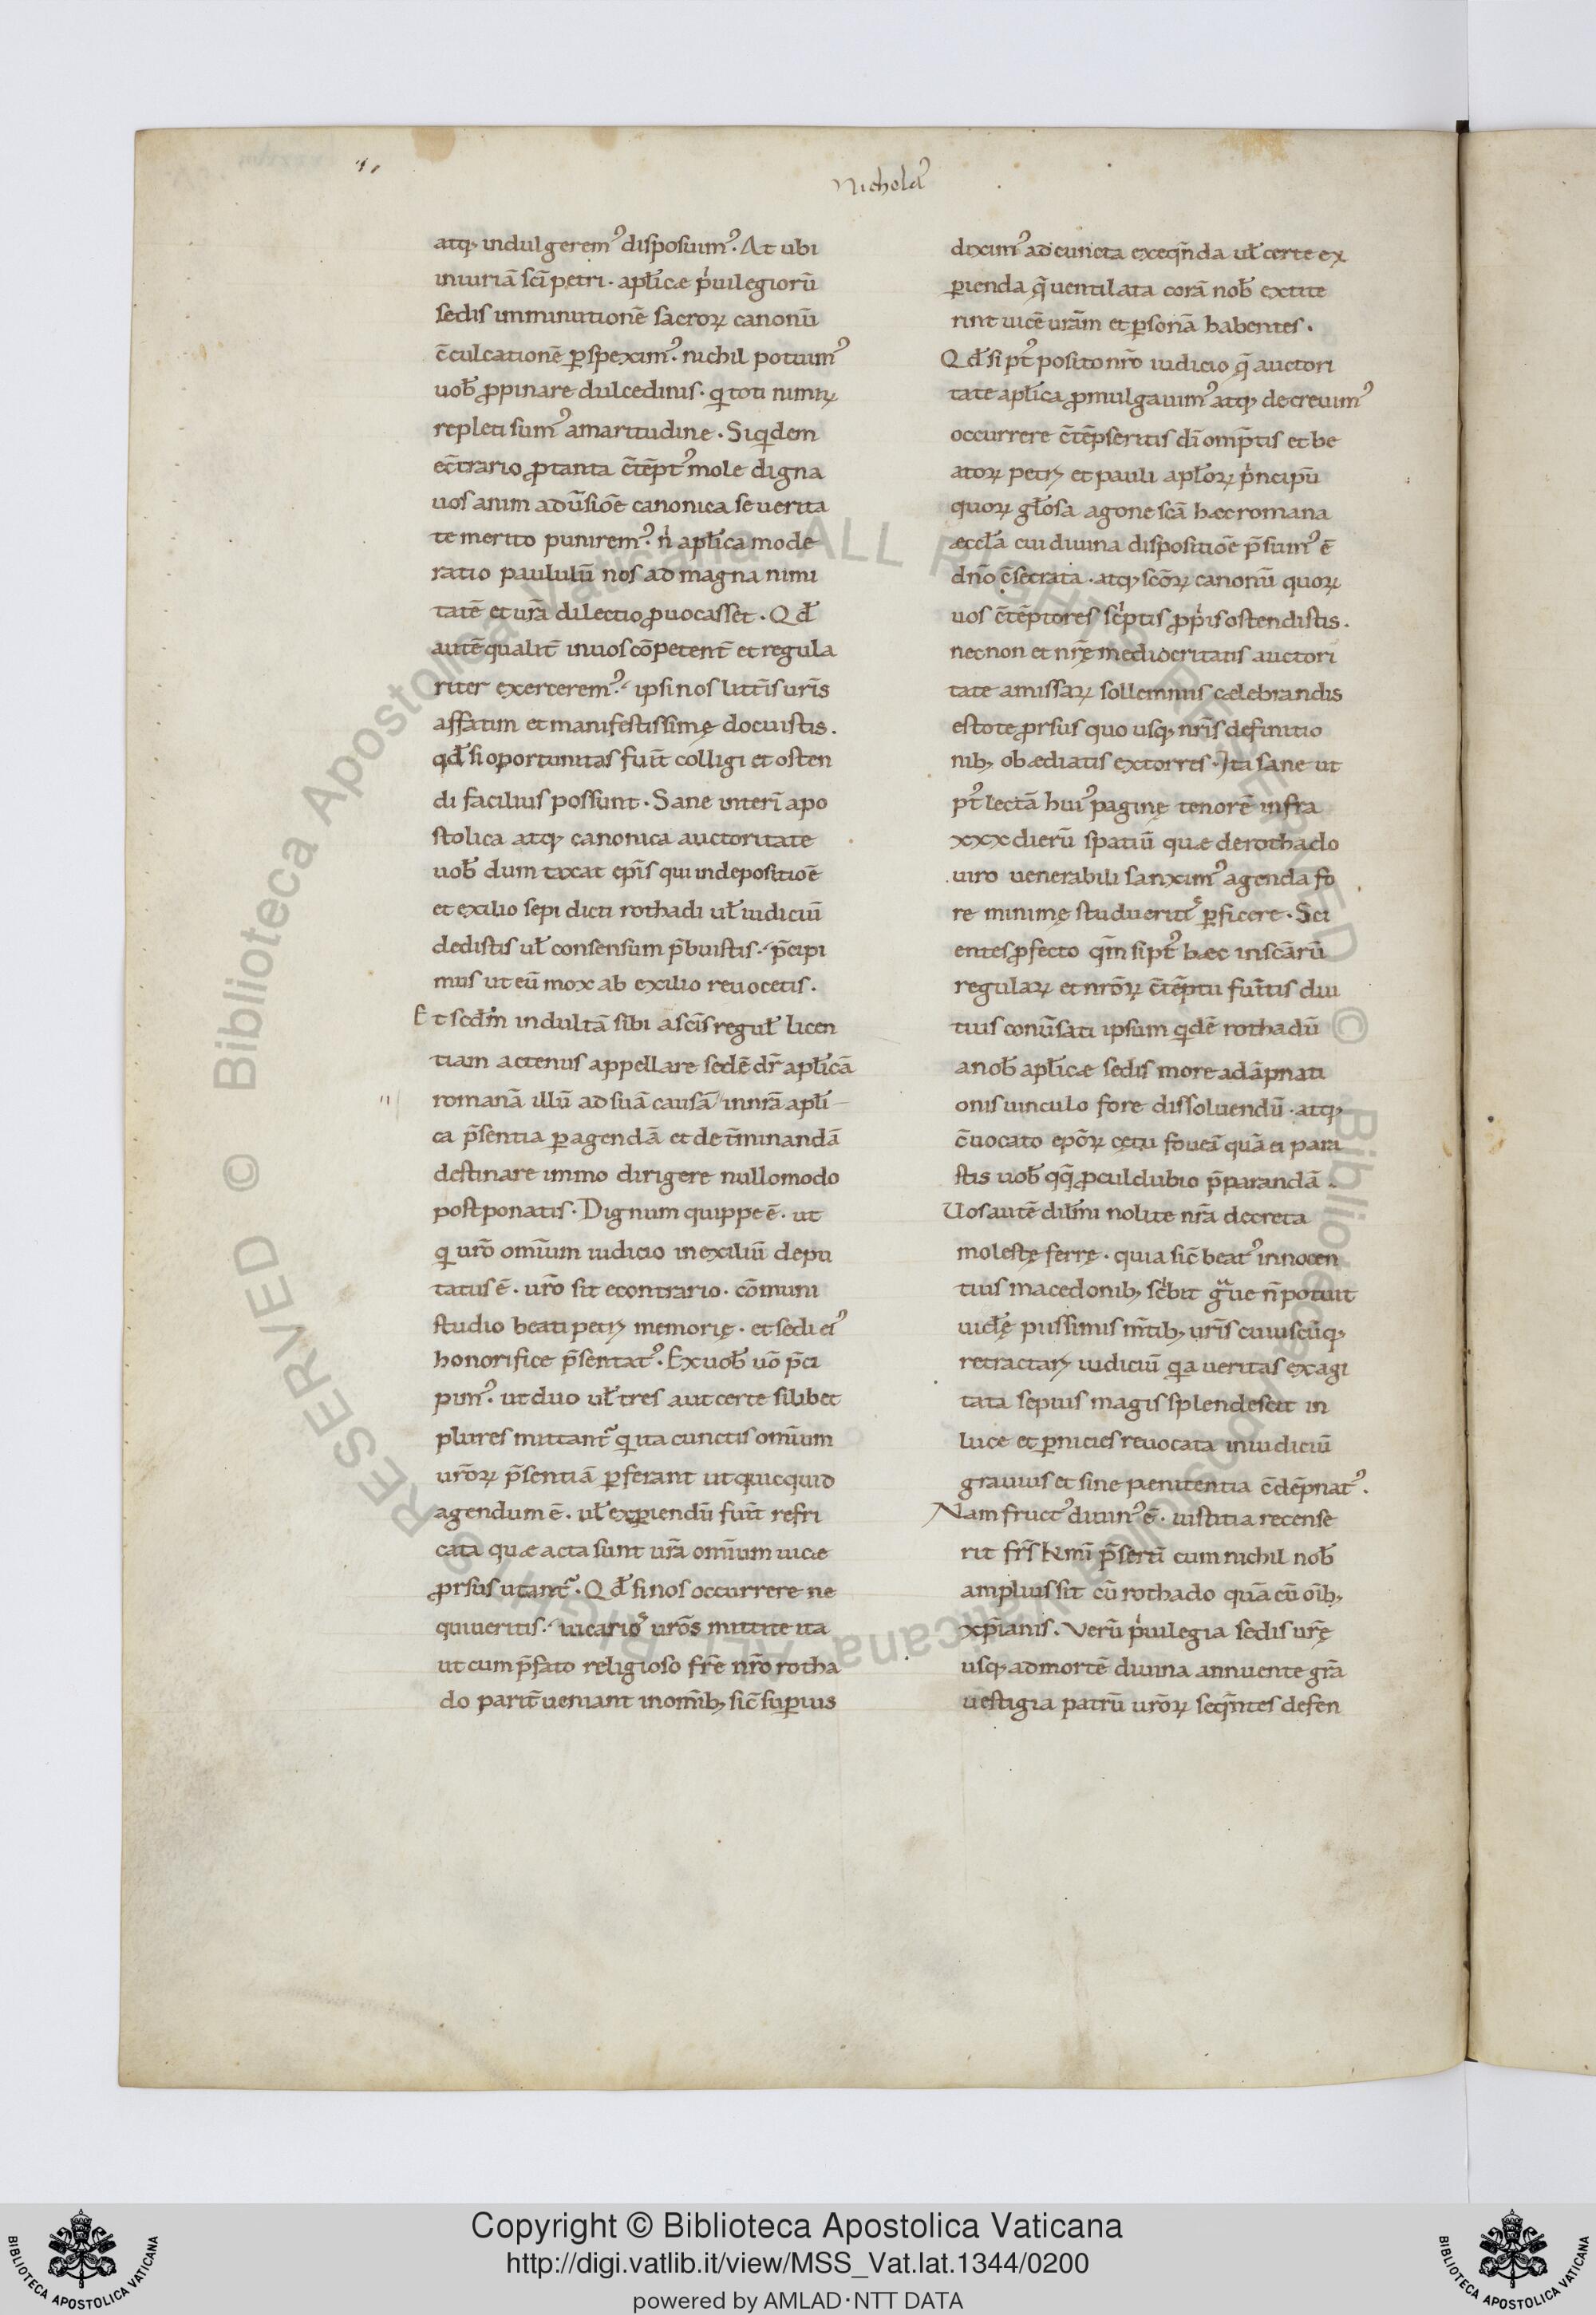 Nicholaꝰ
atq; indulgeremꝰ disposuimꝰ. At ubi
iniuriã sc̃i petri. apl̃icæ p͛uilegiorũ
sedis imminutionẽ sacroꝝ canonũ
c̃culcationẽ ꝑspeximꝰ. nichil potuimꝰ
uob̃ ꝓpinare dulcedinis. q͛ toti nimiꝝ
repleti sumꝰ amaritudine. Siq͛dem
ec̃trario ꝓ tanta c̃tẽptꝰ mole digna
uos animaduũsiõe canonica seuerita
te merito puniremꝰ. n͛ apl̃ica mode
ratio paululũ nos ad magnanimi
tatẽ et ur̃a dilectio ꝓuocasset. Qd̃
autẽ qualit̃ in uos cõpetent̃ et regula
riter exerceremꝰ. ipsi nos litt̃is ur̃is
affatim et manifestissimę docuistis.
qd̃ si oportunitas fuit̃ colligi et osten
di facilius possunt. Sane interĩ apo
stolica atq; canonica auctoritate
uob̃ dum taxat ep̃is qui in depositiõe
et exilio sepi dicti rothadi ul̃ iudiciũ
dedistis ul̃ consensum p̃buistis. p̃cipi
mus ut eũ mox ab exilio reuocetis.
Et scd̃m indultã sibi a sc̃is regul̃ licen
tiam actenus appellare sedẽ dr̃ apl̃icã
romanã illũ ad suã causã in nr̃a apl̃i
ca p̃sentia ꝑagendã et det̃minandã
destinare immo dirigere nullomodo
postponatis. Dignum quippe ẽ. ut
q͛ ur̃o omĩum iudicio in exiliũ depu
tatus ẽ. ur̃o sit econtrario. cõmuni
studio beati petri memorię. et sedi eiꝰ
honorifice p̃sentatꝰ. Ex uob̃ uõ p̃ci
pimꝰ. ut duo ul̃ tres aut certe si libet
plures mittant᷑ q͛ ita cunctis omĩum
ur̃oꝝ p̃sentiã ꝑferant ut quicquid
agendum ẽ. ul̃ exꝑiendũ fuit̃ refri
cata quæ acta sunt ur̃a omĩum uicæ
ꝓrsus utant᷑. Qd̃ si nos occurrere ne
quiueritis. uicarios ur̃os mittite ita
ut cum p̃fato religioso fr̃e nr̃o rotha
do parit̃ ueniant in omĩb; sic̃ suꝑius
diximꝰ ad cuncta exeq̃nda ul̃ certe ex
ꝑienda q̃ uentilata corã nob̃ extite
rint uicẽ ur̃am et ꝑsonã habentes.
Qd̃ si ptꝰ posito nr̃o iudicio q̃ auctori
tate apl̃ica ꝓmulgauimꝰ atq; decreuimꝰ
occurrere c̃tẽpseritis dĩ omp̃tis et be
atoꝝ petri et pauli apl̃oꝝ p͛ncipũ
quoꝝ gl̃osa agone sc̃a hæc romana
æccl̃a cui diuina dispositiõe p̃sumꝰ ẽ
dnõ c̃secrata. atq; sc̃oꝝ canonũ quoꝝ
uos c̃tẽptores sc͛ptis ꝓp͛is ostendistis.
necnon et nr̃ę mediocritatis auctori
tate a missaꝝ sollemniis cælebrandis
estote ꝓrsus quo usq; nr̃is definitio
nib; obædiatis extorres. Ita sane ut
ptꝰ lectã huiꝰ paginę tenorẽ infra
xxx dierũ spatiũ quæ de rothado
uiro uenerabili sanximꝰ agenda fo
re minimę studuerit᷑ ꝑficere. Sci
entes ꝓfecto qm̃ si ptꝰ hæc in sc̃arũ
regulaꝝ et nr̃oꝝ c̃tẽptu fuit̃is diu
tius conũsati ipsum q͛dẽ rothadũ
a nob̃ apl̃icæ sedis more a dãpnati
onis uinculo fore dissoluendũ. atq;
c̃uocato ep̃oꝝ cętu foueã quã ei para
stis uob̃ qq̃ ꝓculdubio p̃parandã.
Uos autẽ dil̃mi nolite nr̃a decreta
molestę ferrę. quia sic̃ beatꝰ innocen
tius macedonib; sc͛bit gͣue ñ potuit
uid̃ę piissimis m̃tib; ur̃is cuiuscũq;
retractari iudiciũ q͛a ueritas exagi
tata sepius magis splendescit in
luce et ꝑnicies reuocata in iudiciũ
grauius et sine pænitentia c̃dẽpnatꝰ.
Nam fructꝰ diuinꝰ ẽ. iustitia recense
rit fr̃s kmĩ p̃sertĩ cum nichil nob̃
amplius sit cũ rothado quã cũ oĩb;
xp̃ianis. Verũ p͛uilegia sedis ur̃ę
usq; ad mortẽ diuina annuente gr̃a
uestigia patrũ ur̃oꝝ seq̃ntes defen
Copyright © Biblioteca Apostolica Vaticana
http://digi.vatlib.it/view/MSS_Vat.lat.1344/0200
powered by AMLAD·NTT DATA
BIBLIOTECA APOSTOLICA VATICANA
BIBLIOTECA APOSTOLICA VATICANA
© Biblioteca Apostolica Vaticana ALL RIGHTS RESERVED
© Biblioteca Apostolica Vaticana ALL RIGHTS RESERVED